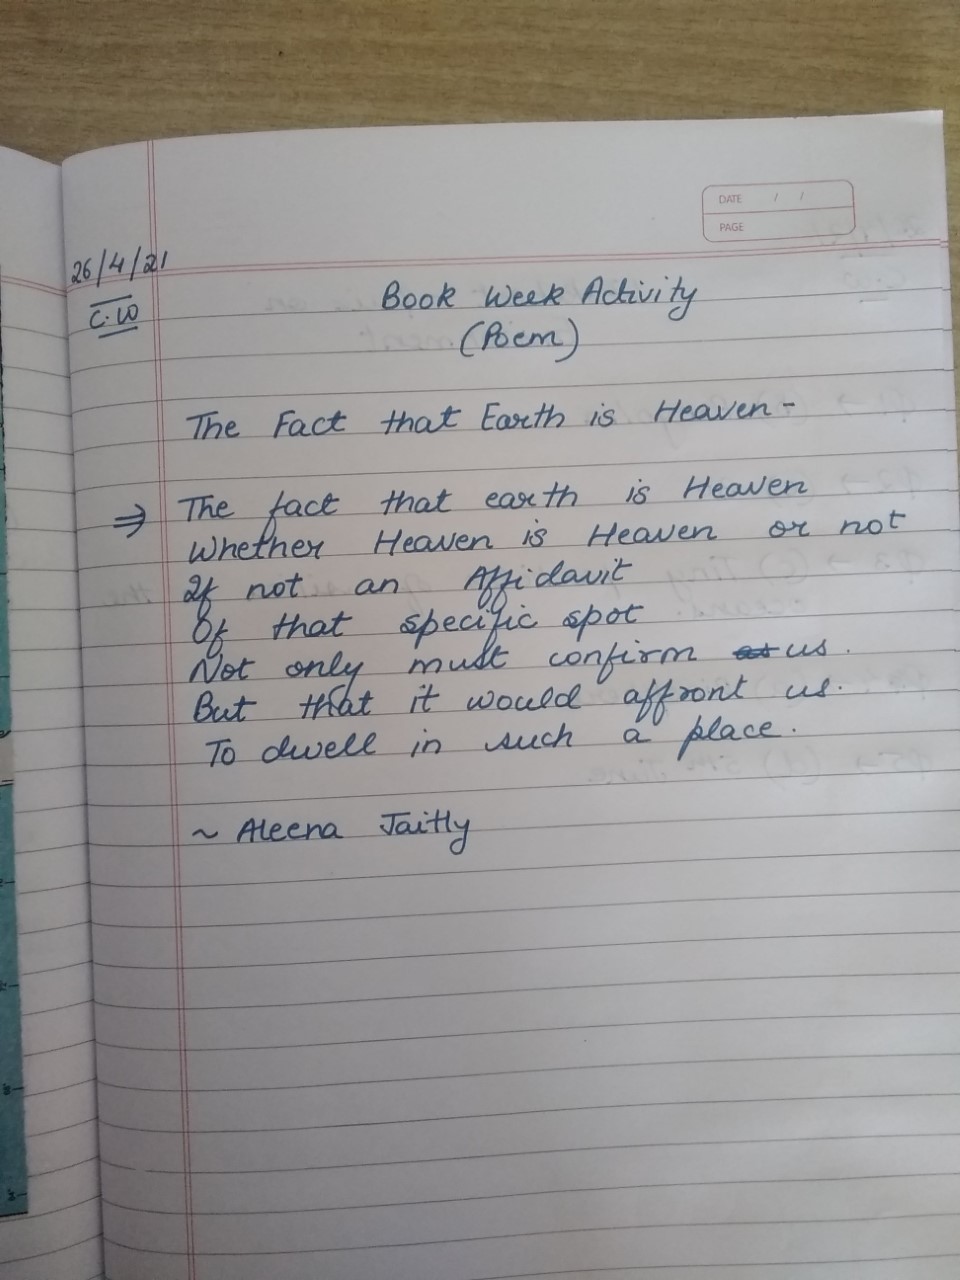 DATE / /
PAGE
26/4/21
C.W
Book Week Activity
(Poem)
The Fact that Earth is Heaven-
⇒ The fact that earth is Heaven
Whether Heaven is Heaven or not
If not an Affidavit
Of that specific spot
Not only must confirm us.
But that it would affront us.
To dwell in such a place.
~ Aleena Jaitly